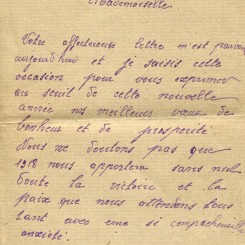 Mademoiselle
Votre affectueuse lettre m'est parvenue
aujourd'hui et je saisis cette
occasion pour vous exprimer
au seuil de cette nouvelle
année nos meilleurs vœux de
bonheur et de prospérité.
Nous ne doutons pas que
1918 nous apportera sans nul
doute la victoire et la
paix que nous attendons tous
tant avec une si compréhensible
anxiété.